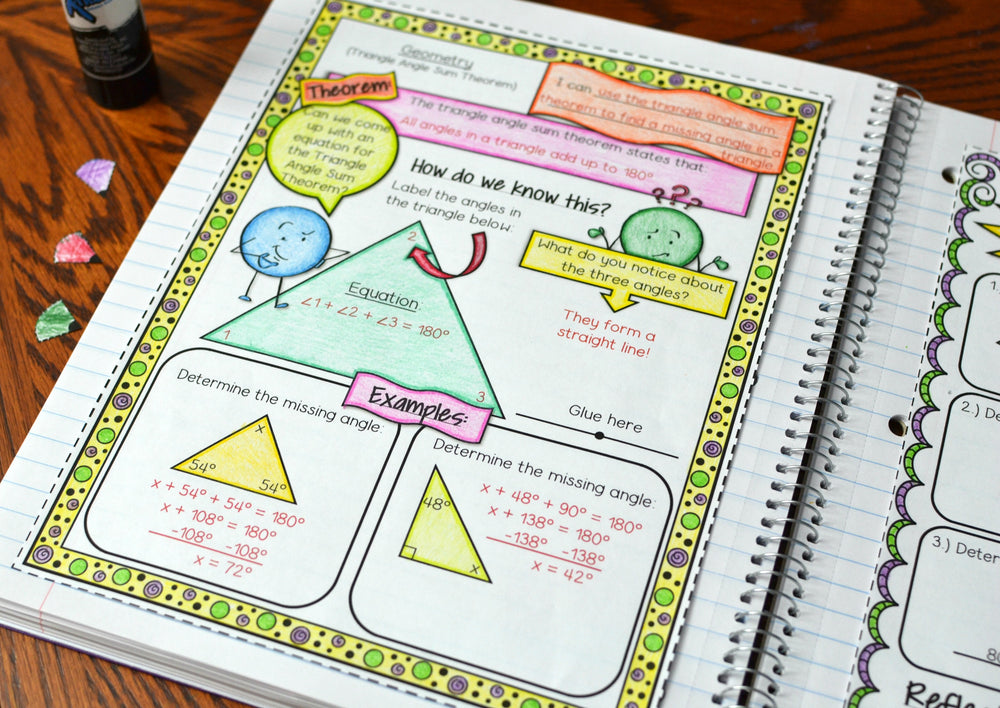 Geometry
(Triangle Angle Sum Theorem)
I can use the triangle angle sum
theorem to find a missing angle in a
triangle.
Theorem:
The triangle angle sum theorem states that:
All angles in a triangle add up to 180°
Can we come
up with an
equation for
the Triangle
Angle Sum
Theorem?
How do we know this?
Label the angles in
the triangle below:
???
What do you notice about
the three angles?
They form a
straight line!
2
Equation:
∠1 + ∠2 + ∠3 = 180°
1
3
Glue here
Examples:
Determine the missing angle:
x
54°
54°
x + 54° + 54° = 180°
x + 108° = 180°
-108° -108°
x = 72°
Determine the missing angle:
48°
x
x + 48° + 90° = 180°
x + 138° = 180°
-138° -138°
x = 42°
1.
2.) De
3.) Deter